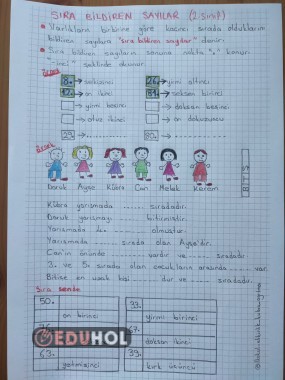 SIRA BİLDİREN SAYILAR (2.sınıf)
Varlıkların birbirine göre kaçıncı sırada olduklarını
bildiren sayılara "sıra bildiren sayılar" denir.
Sıra bildiren sayıların sonuna nokta "." konur.
"-inci" şeklinde okunur.
Örnek
8. sekizinci
26. yirmi altıncı
12. on ikinci
81. seksen birinci
yirmi beşinci
doksan beşinci
otuz ikinci
on dokuzuncu
Örnek
Doruk Ayşe Kübra Can Melek Kerem
BİTİŞ
Kübra yarışmada ........ sıradadır.
Doruk yarışmayı ........ bitirmiştir.
Yarışmada ........ olmuştur.
Yarışmada ........ sırada olan Ayşe'dir.
Can'ın önünde ........ vardır ve ........ sıradadır.
2. ve 5. sırada olan çocukların arasında ........ var.
Bitişe en uzak kişi ........ dur ve ........ sıradadır.
Sıra sende
50.
on birinci
yirmi birinci
EDUHOL
67.
doksan ikinci
63.
yetmişinci
33.
kırk üçüncü